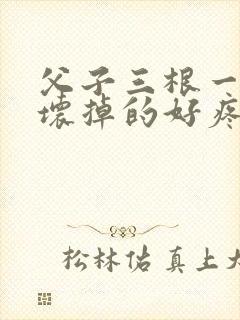 父子三根一
壞掉的好疼
松林佑真上大